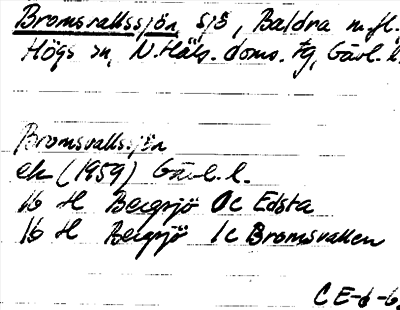 Bromsvallssjön, sjö, Baldra m.fl.
Högs sn, N. Häls. doms. tg, Gävl. l.
Bromsvallssjön
ek (1959) Gävl. l.
16 H Bergsjö 0c Edsta
16 H Bergsjö 1c Bromsvallen
CE-6-6